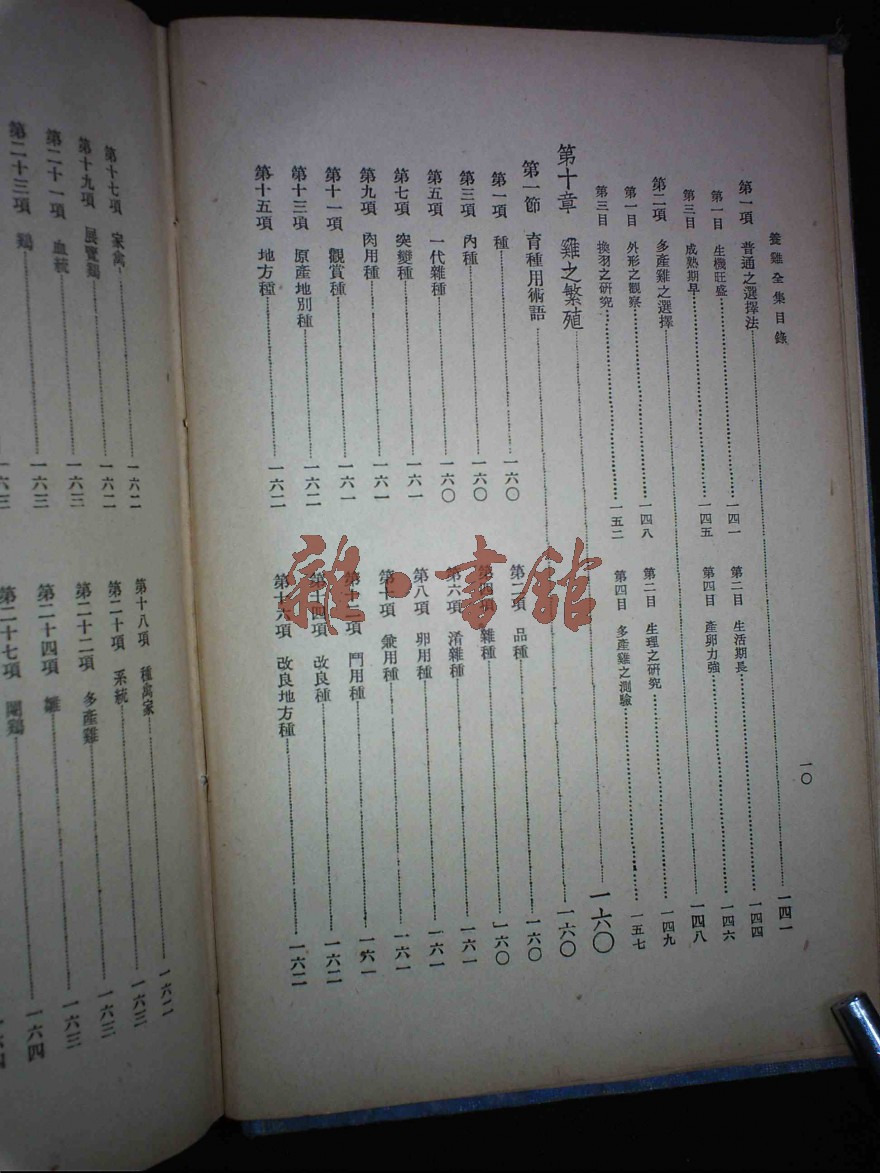 養雞全集目錄
一〇
第一項 普通之選擇法 一四一
第一目 生機旺盛 一四一
第二目 生活期長 一四四
第三目 成熟期早 一四五
第四目 產卵力強 一四六
第二項 多產雞之選擇 一四八
第一目 外形之觀察 一四八
第二目 生理之研究 一四九
第三目 換羽之研究 一五二
第四目 多產雞之測驗 一五七
第十章 雞之繁殖 一六〇
第一節 育種用術語 一六〇
第一項 種 一六〇
第二項 品種 一六〇
第三項 內種 一六〇
第四項 雜種 一六〇
第五項 一代雜種 一六〇
第六項 淆雜種 一六一
第七項 突變種 一六一
第八項 卵用種 一六一
第九項 肉用種 一六一
第十項 兼用種 一六一
第十一項 觀賞種 一六一
第十二項 鬥用種 一六一
第十三項 原產地別種 一六二
第十四項 改良種 一六二
第十五項 地方種 一六二
第十六項 改良地方種 一六二
第十七項 家禽 一六二
第十八項 種禽家 一六二
第十九項 展覽鷄 一六二
第二十項 系統 一六三
第二十一項 血統 一六三
第二十二項 多產雞 一六三
第二十三項 鷄 一六三
第二十四項 雛 一六三
第二十七項 閹鷄 一六四
雜·書館